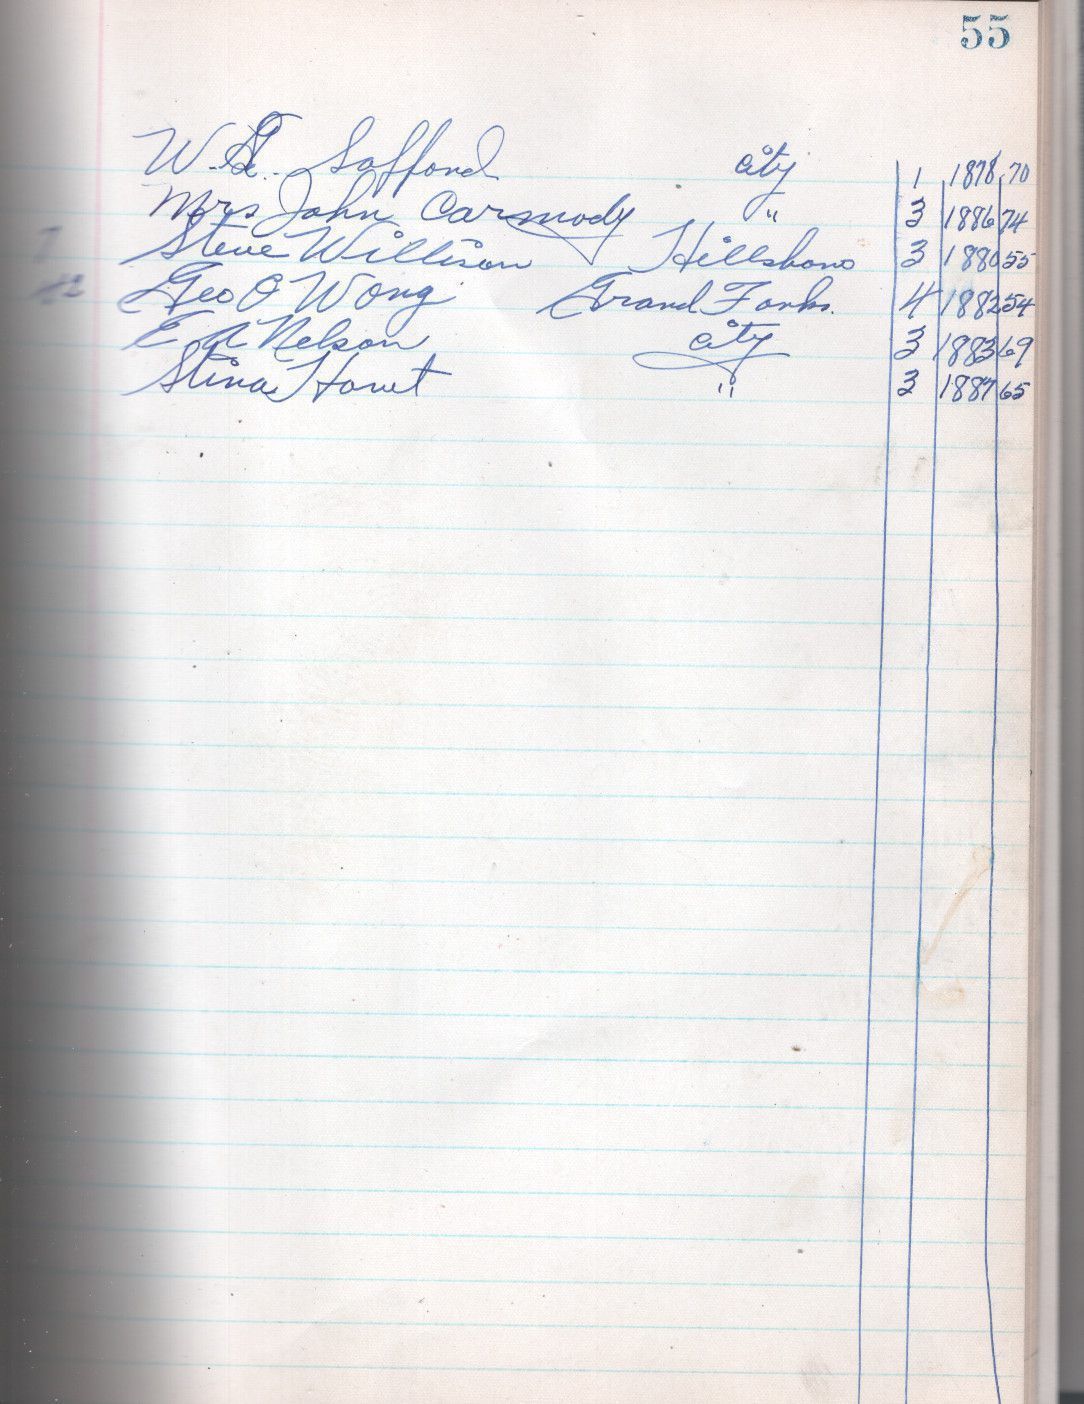 55
W. Safford city 1 1878 70
Mrs John Carmody " 3 1886 74
Steve Willison Hillsboro 3 1880 55
Geo O Wong Grand Forks. 4 1882 54
E A Nelson city 3 1883 69
Stina " 3 1887 65